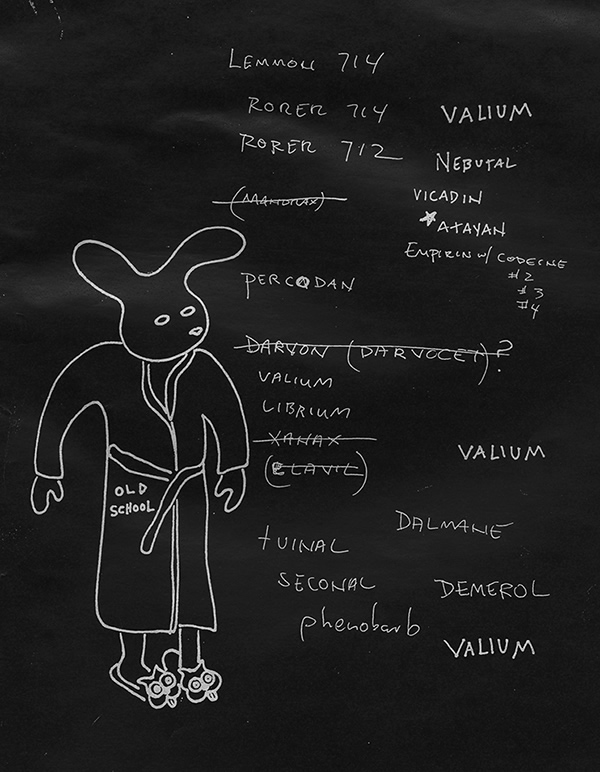 LEMMON 714
RORER 714
VALIUM
RORER 712
NEBUTAL
(MANDRAX)
VICADIN
ATAVAN
EMPIRIN w/ CODEINE
#2
#3
#4
PERCODAN
DARVON (DARVOCET) ?
VALIUM
LIBRIUM
XANAX
VALIUM
(ELAVIL)
OLD
SCHOOL
DALMANE
tUINAL
SECONAL
DEMEROL
phenobarb
VALIUM